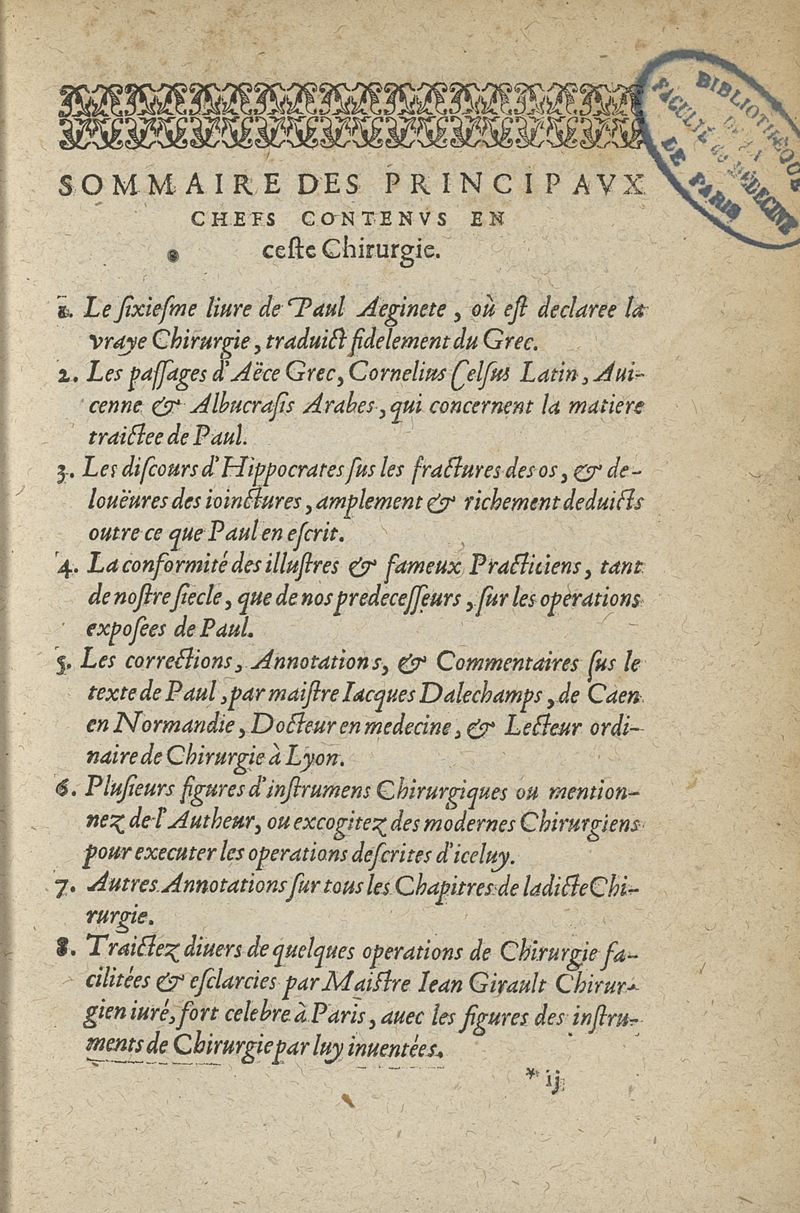 BIBLIOTHÈQUE
DE LA
FACULTÉ de MÉDECINE
DE PARIS
SOMMAIRE DES PRINCIPAVX
CHEFS CONTENVS EN
ceſte Chirurgie.
1. Le ſixieſme liure de Paul Aeginete, où eſt declaree la
vraye Chirurgie, traduict fidelement du Grec.
2. Les paſſages d'Aëce Grec, Cornelius Celſus Latin, Aui-
cenne & Albucraſis Arabes, qui concernent la matiere
traictee de Paul.
3. Les diſcours d'Hippocrates ſus les fractures des os, & de-
louëures des ioinctures, amplement & richement deduicts
outre ce que Paul en eſcrit.
4. La conformité des illuſtres & fameux Practiciens, tant
de noſtre ſiecle, que de nos predeceſſeurs, ſur les operations
expoſees de Paul.
5. Les corrections, Annotations, & Commentaires ſus le
texte de Paul, par maiſtre Iacques Dalechamps, de Caen
en Normandie, Docteur en medecine, & Lecteur ordi-
naire de Chirurgie à Lyon.
6. Pluſieurs figures d'inſtrumens Chirurgiques ou mention-
nez de l'Autheur, ou excogitez des modernes Chirurgiens
pour executer les operations deſcrites d'iceluy.
7. Autres Annotations ſur tous les Chapitres de ladicte Chi-
rurgie.
8. Traictez diuers de quelques operations de Chirurgie fa-
cilitées & eſclarcies par Maiſtre Iean Girault Chirur-
gien iuré, fort celebre à Paris, auec les figures des inſtru-
ments de Chirurgie par luy inuentées.
* ij